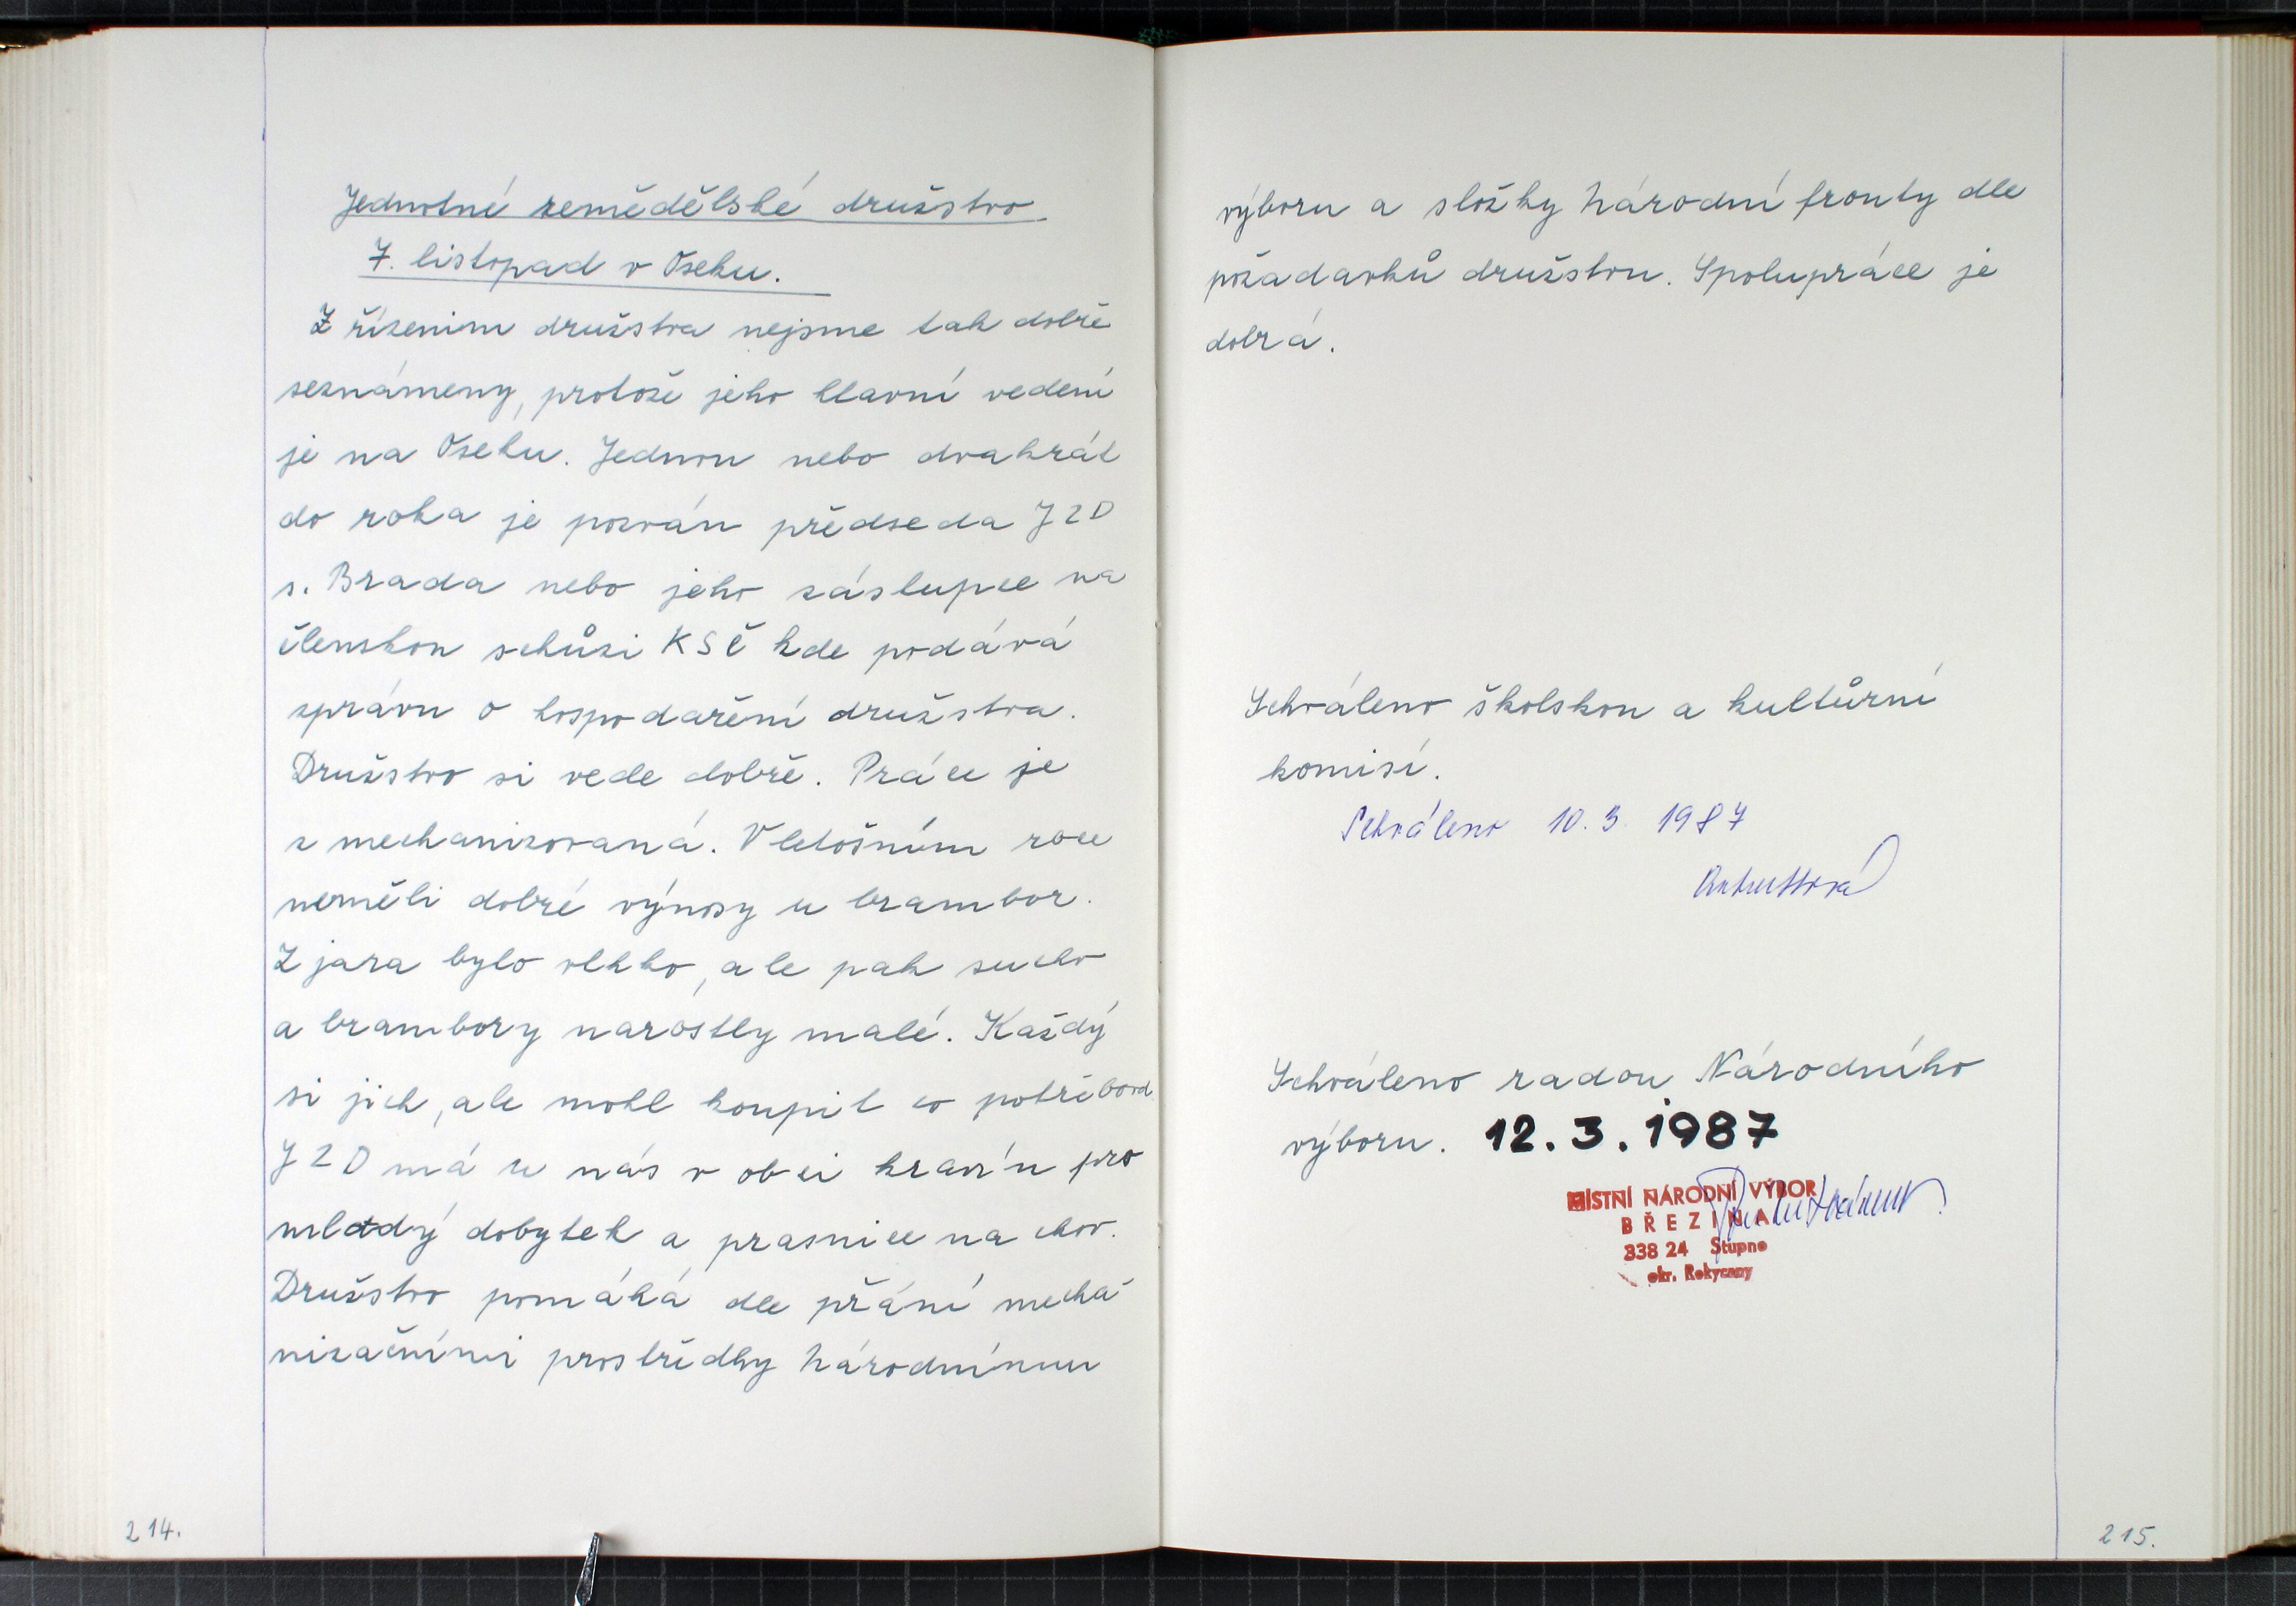 Jednotné zemědělské družstvo
7. listopad v Oseku.
Z řízenim družstva nejsme tak dobře
seznámeny, protože jeho hlavní vedení
je na Oseku. Jednou nebo dvakrát
do roka je pozván předseda JZD
s. Brada nebo jeho zástupce na
členskou schůzi KSČ kde podává
zprávu o hospodaření družstva.
Družstvo si vede dobře. Práce je
z mechanizovaná. V letošním roce
neměli dobré výnosy u brambor.
Z jara bylo vlhko, ale pak sucho
a brambory narostly malé. Každý
si jich, ale mohl koupit co potřeboval
JZD má u nás v obci kravín pro
mladý dobytek a prasnice na chov.
Družstvo pomáhá dle přání mecha
nizačními prostředky národnímu
214.
výboru a složky národní fronty dle
požadavků družstvu. Spolupráce je
dobrá.
Schváleno školskou a kultůrní
komisí.
Schváleno 10. 3. 1987
Schváleno radou Národního
výboru. 12.3.1987
MÍSTNÍ NÁRODNÍ VÝBOR
BŘEZINA
338 24 Stupno
okr. Rokycany
215.